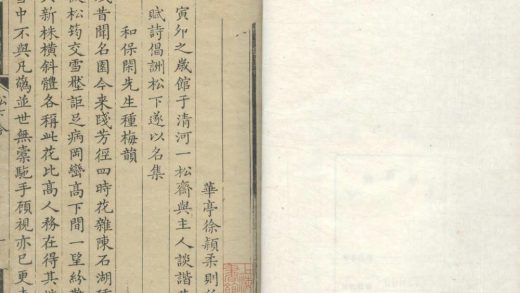 華亭徐穎柔則
寅卯之歲館于清河一松齋與主人談諧
賦詩倡詶松下遂以名集
和保閑先生種梅韻
昔聞名園今来踐芳徑四時花雜陳石湖
松筠交雪壑詎足病岡巒高下間一望紛
新株橫斜體各稱此花比高人務在得其
雪中不與凡蘤並世無橐駝手顧視亦已更